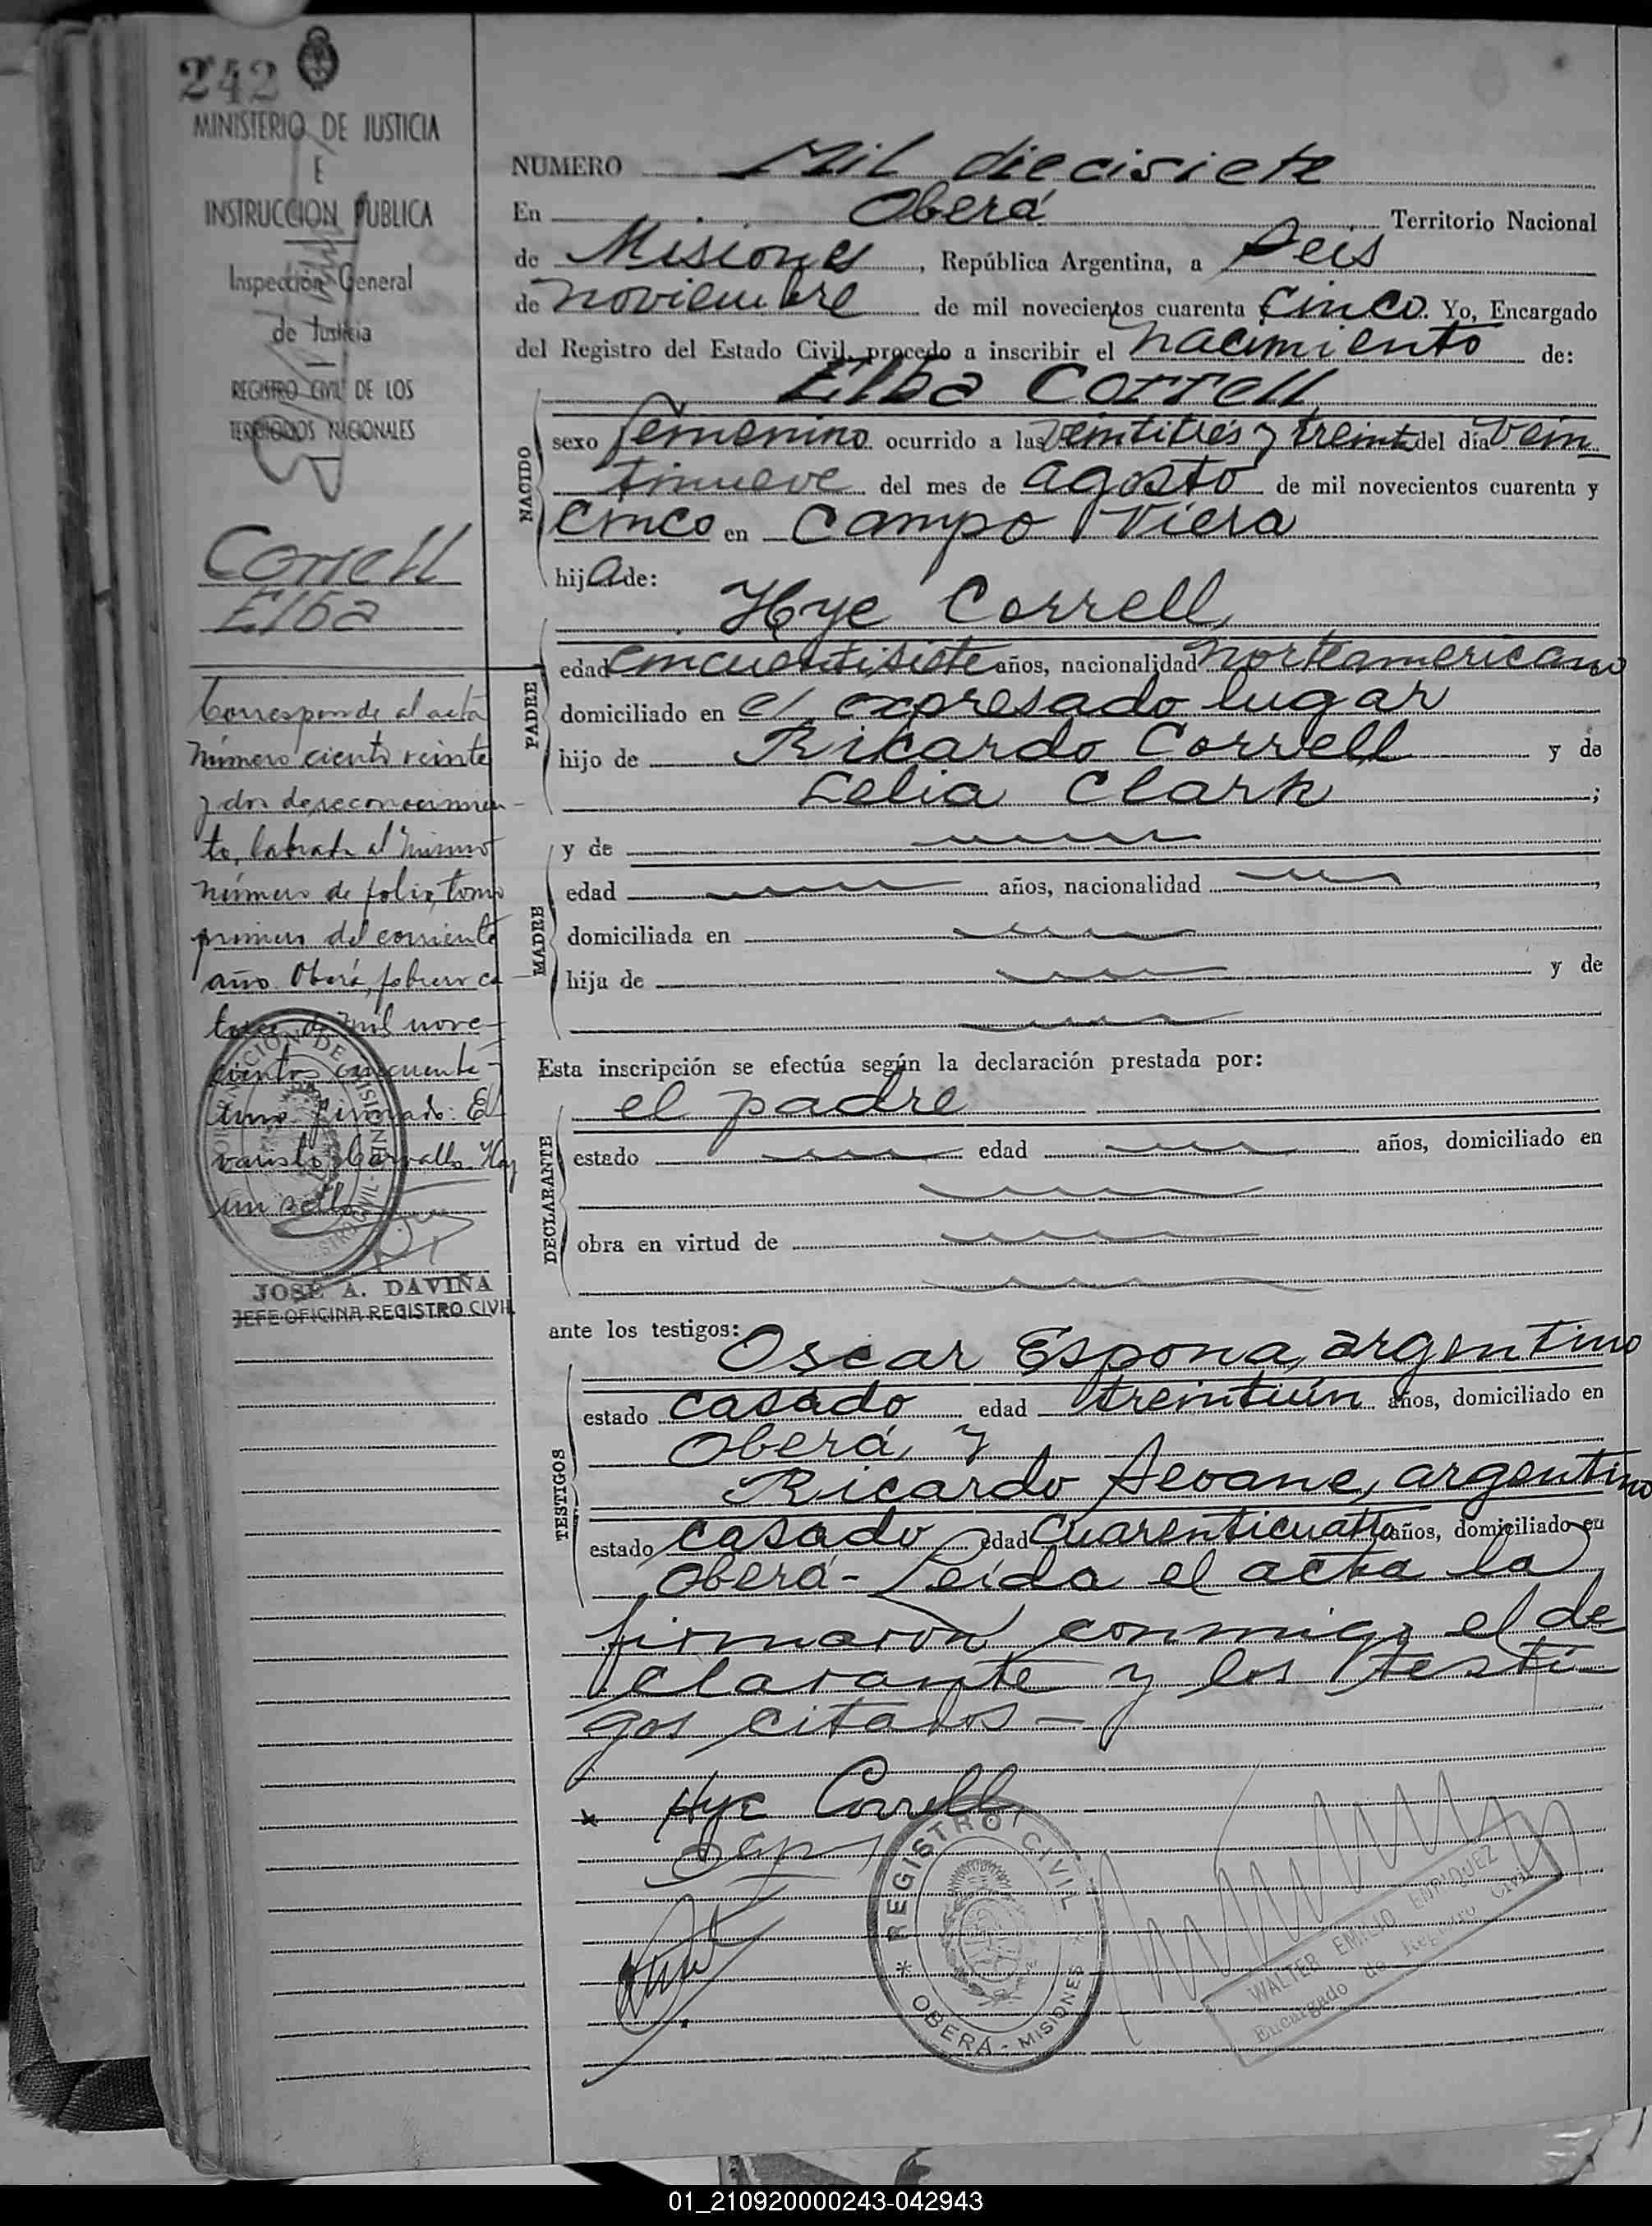 242
MINISTERIO DE JUSTICIA
E
INSTRUCCION PUBLICA
Inspección General
de Justicia
REGISTRO CIVIL DE LOS
TERRITORIOS NACIONALES
Correll
Elba
Corresponde al acta
número ciento veinte
y dos de reconocimien-
to, labrada al mismo
número de folio, tomo
primero del corriente
año. Oberá, febrero ca
torce de mil nove-
cientos cincuenta-
uno. firmado: E
varisto Carvallo. Hay
un sello
JOSÉ A. DAVIÑA
JEFE OFICINA REGISTRO CIVIL
NUMERO Mil diecisiete
En Oberá Territorio Nacional
de Misiones, República Argentina, a Seis
de noviembre de mil novecientos cuarenta cinco. Yo, Encargado
del Registro del Estado Civil, procedo a inscribir el nacimiento de:
NACIDO
Elba Correll
sexo femenino ocurrido a las veintitres y treinta del día vein
tinueve del mes de agosto de mil novecientos cuarenta y
cinco en Campo Viera
hija de:
PADRE
Hye Correll,
edad cincuentisiete años, nacionalidad norteamericano
domiciliado en el expresado lugar
hijo de Ricardo Correll y de
Lelia Clark ;
MADRE
y de
edad años, nacionalidad ,
domiciliada en
hija de y de
Esta inscripción se efectúa según la declaración prestada por:
DECLARANTE
el padre
estado edad años, domiciliado en
obra en virtud de
ante los testigos:
TESTIGOS
Oscar Espona, argentino
estado casado edad treintiún años, domiciliado en
Oberá, y
Ricardo Seoane, argentino
estado casado edad cuarenticuatro años, domiciliado en
Oberá- Leída el acta la
firmaron conmigo el de
clarante y los testi-
gos citados-
x Hye Correll
REGISTRO CIVIL
* OBERÁ - MISIONES *
WALTER EMILIO ENRIQUEZ
Encargado de Registro Civil
01_210920000243-042943